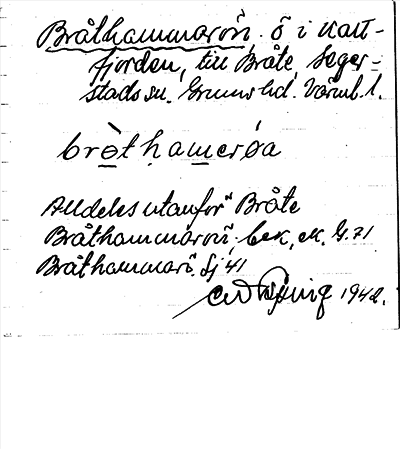 Bråthammarön. ö i Katt-
fjorden, till Bråte, Seger-
stads sn. Grums hd. Värml. l.
brò̱tḥam̱erøa
Alldeles utanför Bråte
Bråthammarön, bek, ek. G. 71
Bråthammarö. Sj 41
1942.